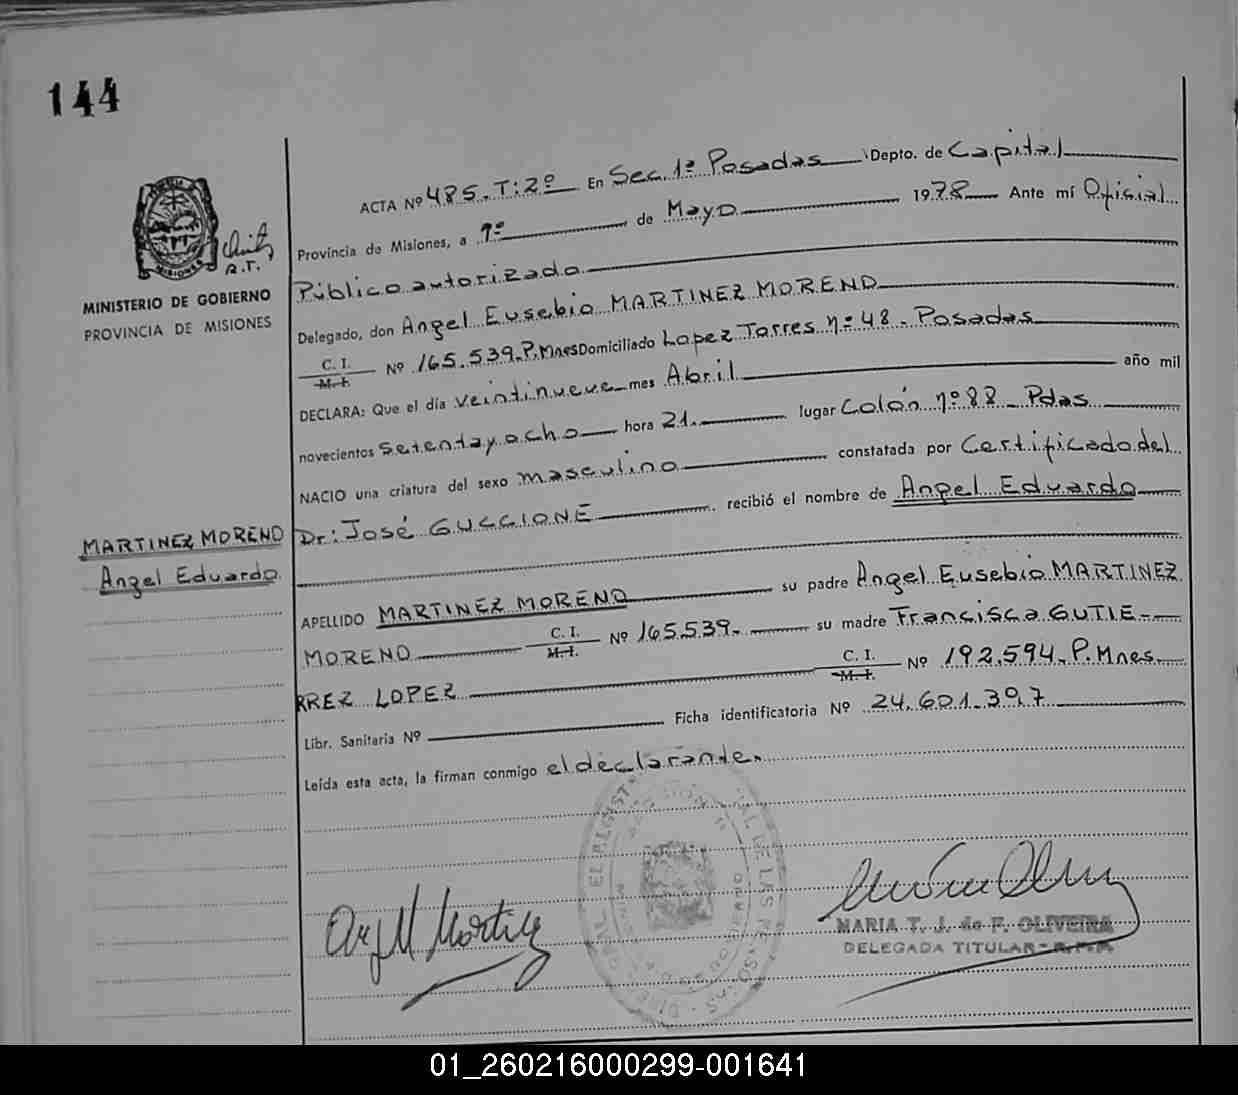 144
ACTA Nº 485. T: 2º En Sec. 1ª Posadas Depto. de Capital
Provincia de Misiones, a 1º de Mayo 1978 Ante mí Oficial
Público autorizado
MINISTERIO DE GOBIERNO
PROVINCIA DE MISIONES
Delegado, don Angel Eusebio MARTINEZ MORENO
C. I. M. I. Nº 165.539. P. Mnes Domiciliado Lopez Torres nº 48. Posadas
DECLARA: Que el día veintinueve mes Abril año mil
novecientos setenta y ocho hora 21. lugar Colón nº 88 Pdas
NACIO una criatura del sexo masculino constatada por Certificado del
Dr: José GUCCIONE recibió el nombre de Angel Eduardo
MARTINEZ MORENO
Angel Eduardo
APELLIDO MARTINEZ MORENO su padre Angel Eusebio MARTINEZ
MORENO C. I. M. I. Nº 165539. su madre Francisca GUTIE-
RREZ LOPEZ C. I. M. I. Nº 192.594. P. Mnes
Libr. Sanitaria Nº Ficha identificatoria Nº 24.601.397
Leída esta acta, la firman conmigo el declarante.
MARIA T. J. de F. OLIVEIRA
DELEGADA TITULAR - R.P.P.
01_260216000299-001641